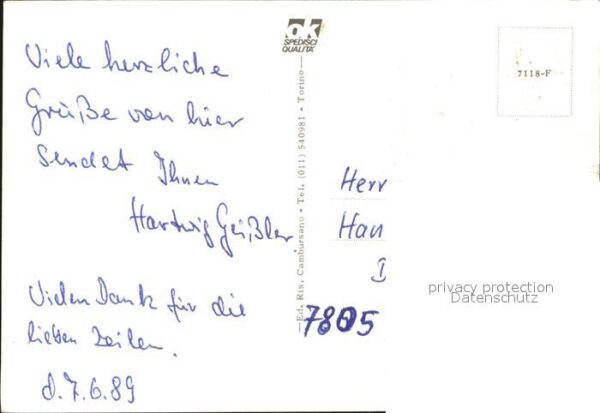 Viele herzliche
Grüße von hier
sendet Ihnen
Hartwig Geißler.
Vielen Dank für die
lieben Zeilen.
d. 7.6.89
ok
SPEDISCI
QUALITÀ
Ed. Ris. Cambursano - Tel. (011) 540981 - Torino
7118-F
Herr
Han
D
7805
privacy protection
Datenschutz